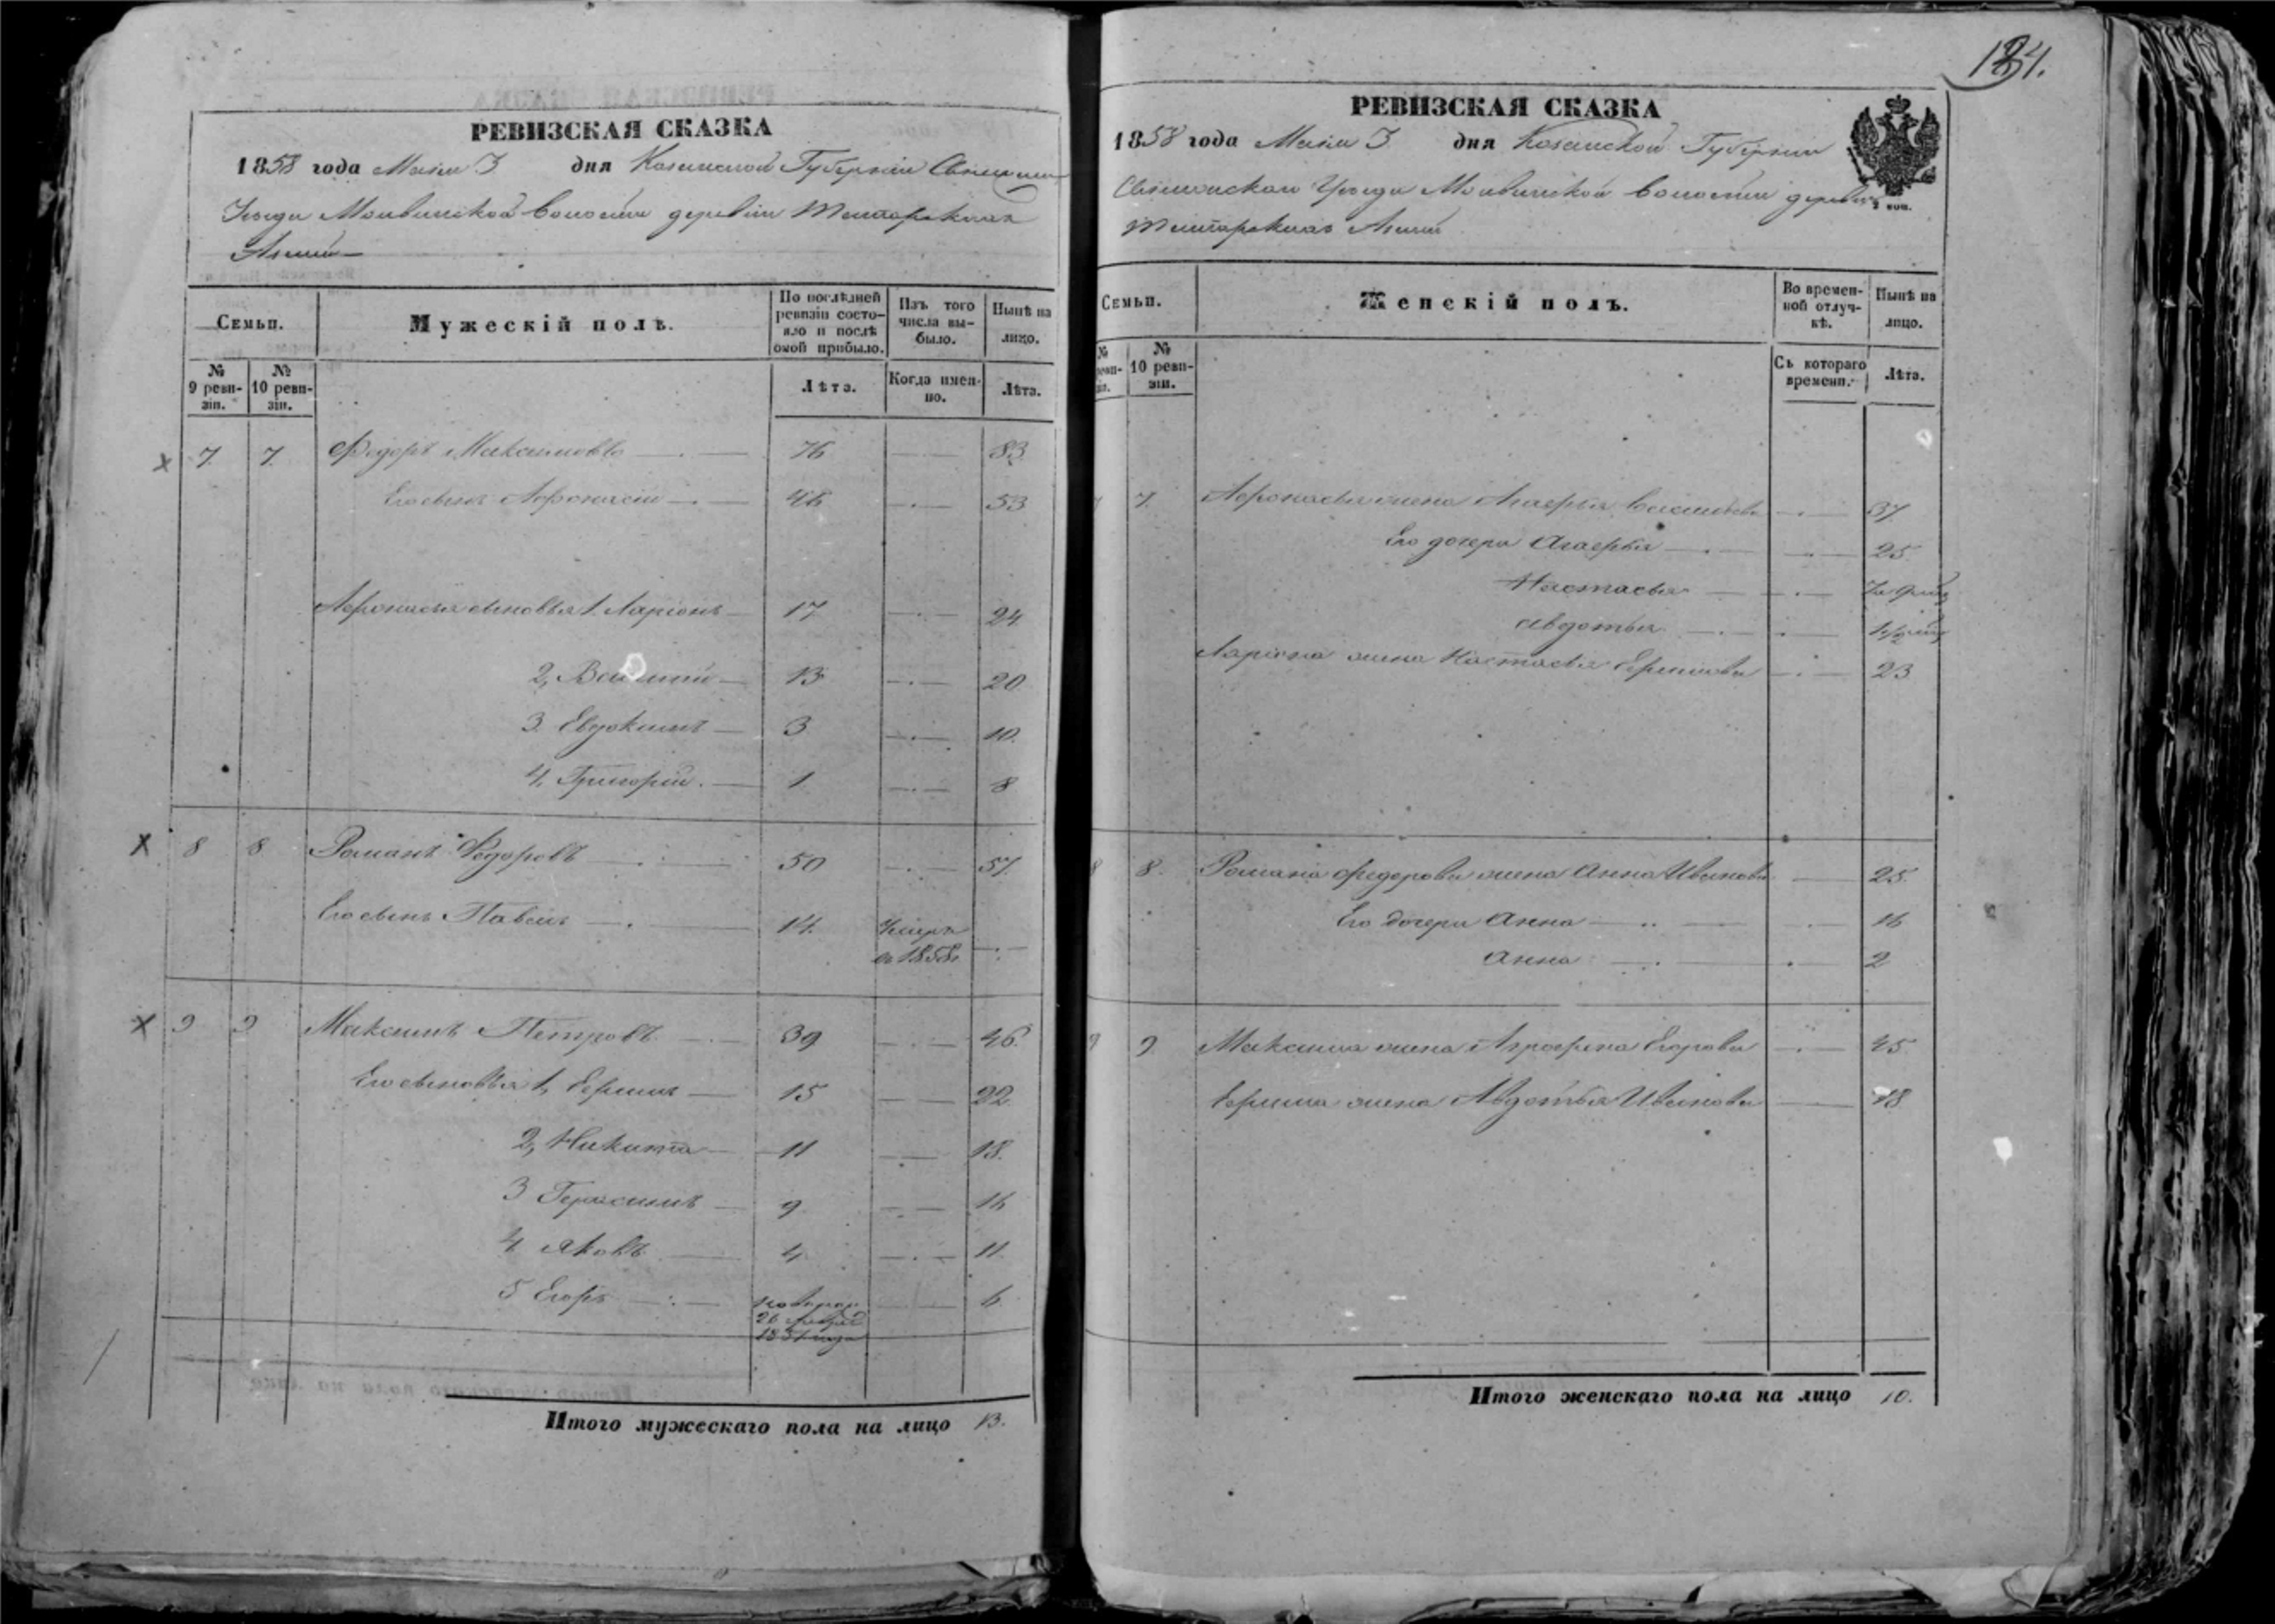 РЕВИЗСКАЯ СКАЗКА
1858 года Маія 3 дня Казанской Губерніи
Уезда Волости деревни
184.
РЕВИЗСКАЯ СКАЗКА
1858 года Маія 3 дня Казанской Губерніи
Уезда Волости деревни
2 коп.
Семьи.
Мужескій полъ.
По послѣдней ревизіи состояло и послѣ оной прибыло.
Изъ того числа выбыло.
Нынѣ на лицо.
№ 9 ревизіи.
№ 10 ревизіи.
Лѣта.
Когда именно.
Лѣта.
7. 7. Федоръ Максимовъ 76 83
Его сынъ Афонасій 46 53
Афонасья сыновья 1. Ларіонъ 17 24
2, Василий 13 20
3. Евдокимъ 3 10.
4. Григорій. 1 8
8 8 Романъ Федоровъ 50 57.
Его сынъ Павелъ 14. Умеръ
9 9 Максимъ Петровъ 39 46.
Его сыновья 1, Ефимъ 15 22
2, Никита 11 18.
3 Герасимъ 9 16
4 Яковъ 4 11.
5 Егоръ 6
Итого мужескаго пола на лицо 13.
Семьи.
Женскій полъ.
Во временной отлучкѣ.
Нынѣ на лицо.
№ 10 ревизіи.
Съ котораго времени.
Лѣта.
7. Афонасья жена Агафья 37
Его дочери Агафья 25
Настасья
Авдотья
Ларіона жена Настасья Ефимова 23
8. Романа Федорова жена Анна Иванова 25.
Его дочери Анна 16
Анна 2
9. Максима жена Агрофена Егорова 45
Ефима жена Авдотья Иванова 18
Итого женскаго пола на лицо 10.